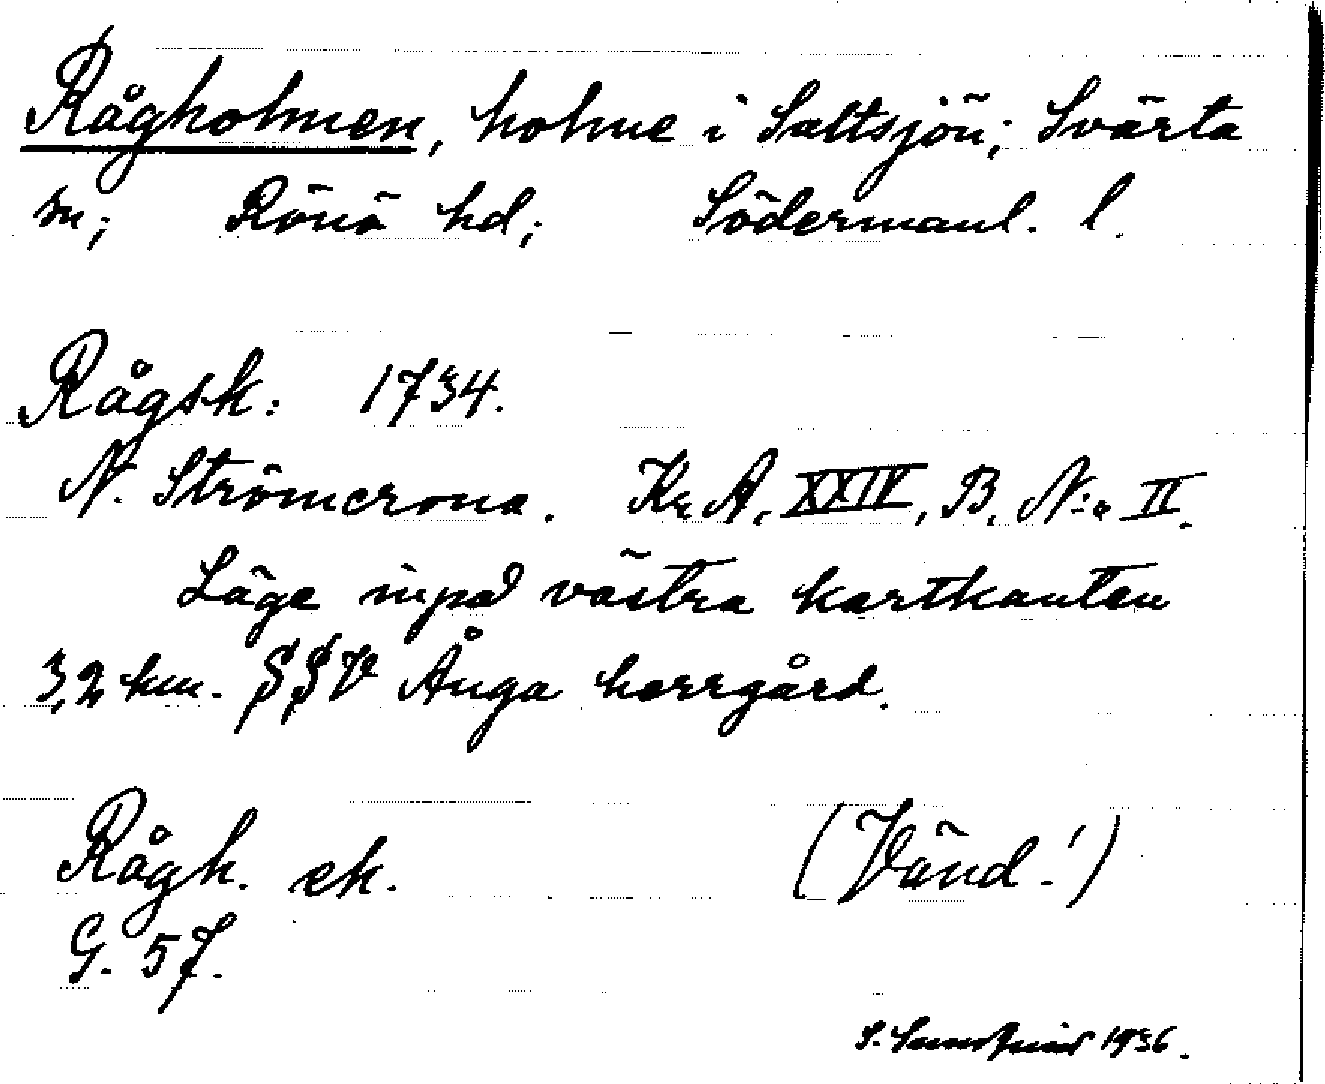 Rågholmen, holme i Saltsjön; Svärta
sn; Rönö hd; Södermanl. l.
Rågsk: 1734.
N. Strömcrona. Kr. A. XXIV, B. N:o II.
Läge inpå västra kartkanten
3,2 km. SSV Ånga herrgård.
Rågh. ek. (Vänd!)
G. 57.
S. 1936.